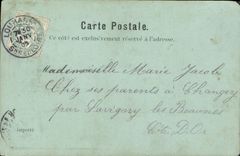 Carte Postale.
Ce côté est exclusivement réservé à l'adresse.
Mademoiselle Marie Jacob
Chez ses parents à Changey
par Savigny les Beaunes
Côte D'Or